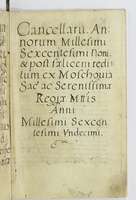 Cancellaria An-
norum Millesimi
Sexcentesimi Noni.
& post fælicem redi-
tum ex Moschovia
Sac. ac Serenissimæ
Regiæ Mttis
Anni
Millesimi Sexcen-
tesimi Undecimi.